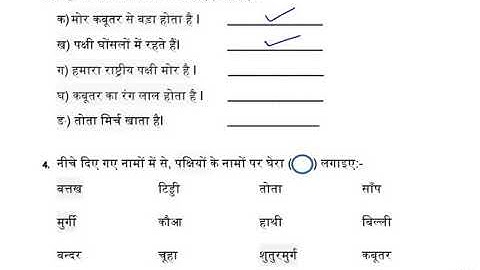 क) मोर कबूतर से बड़ा होता है l
ख) पक्षी घोंसलों में रहते हैं।
ग) हमारा राष्ट्रीय पक्षी मोर है l
घ) कबूतर का रंग लाल होता है l
ङ) तोता मिर्च खाता है।
4. नीचे दिए गए नामों में से, पक्षियों के नामों पर घेरा ( ) लगाइए:-
बत्तख टिड्डी तोता साँप
मुर्गी कौआ हाथी बिल्ली
बन्दर चूहा शुतुरमुर्ग कबूतर